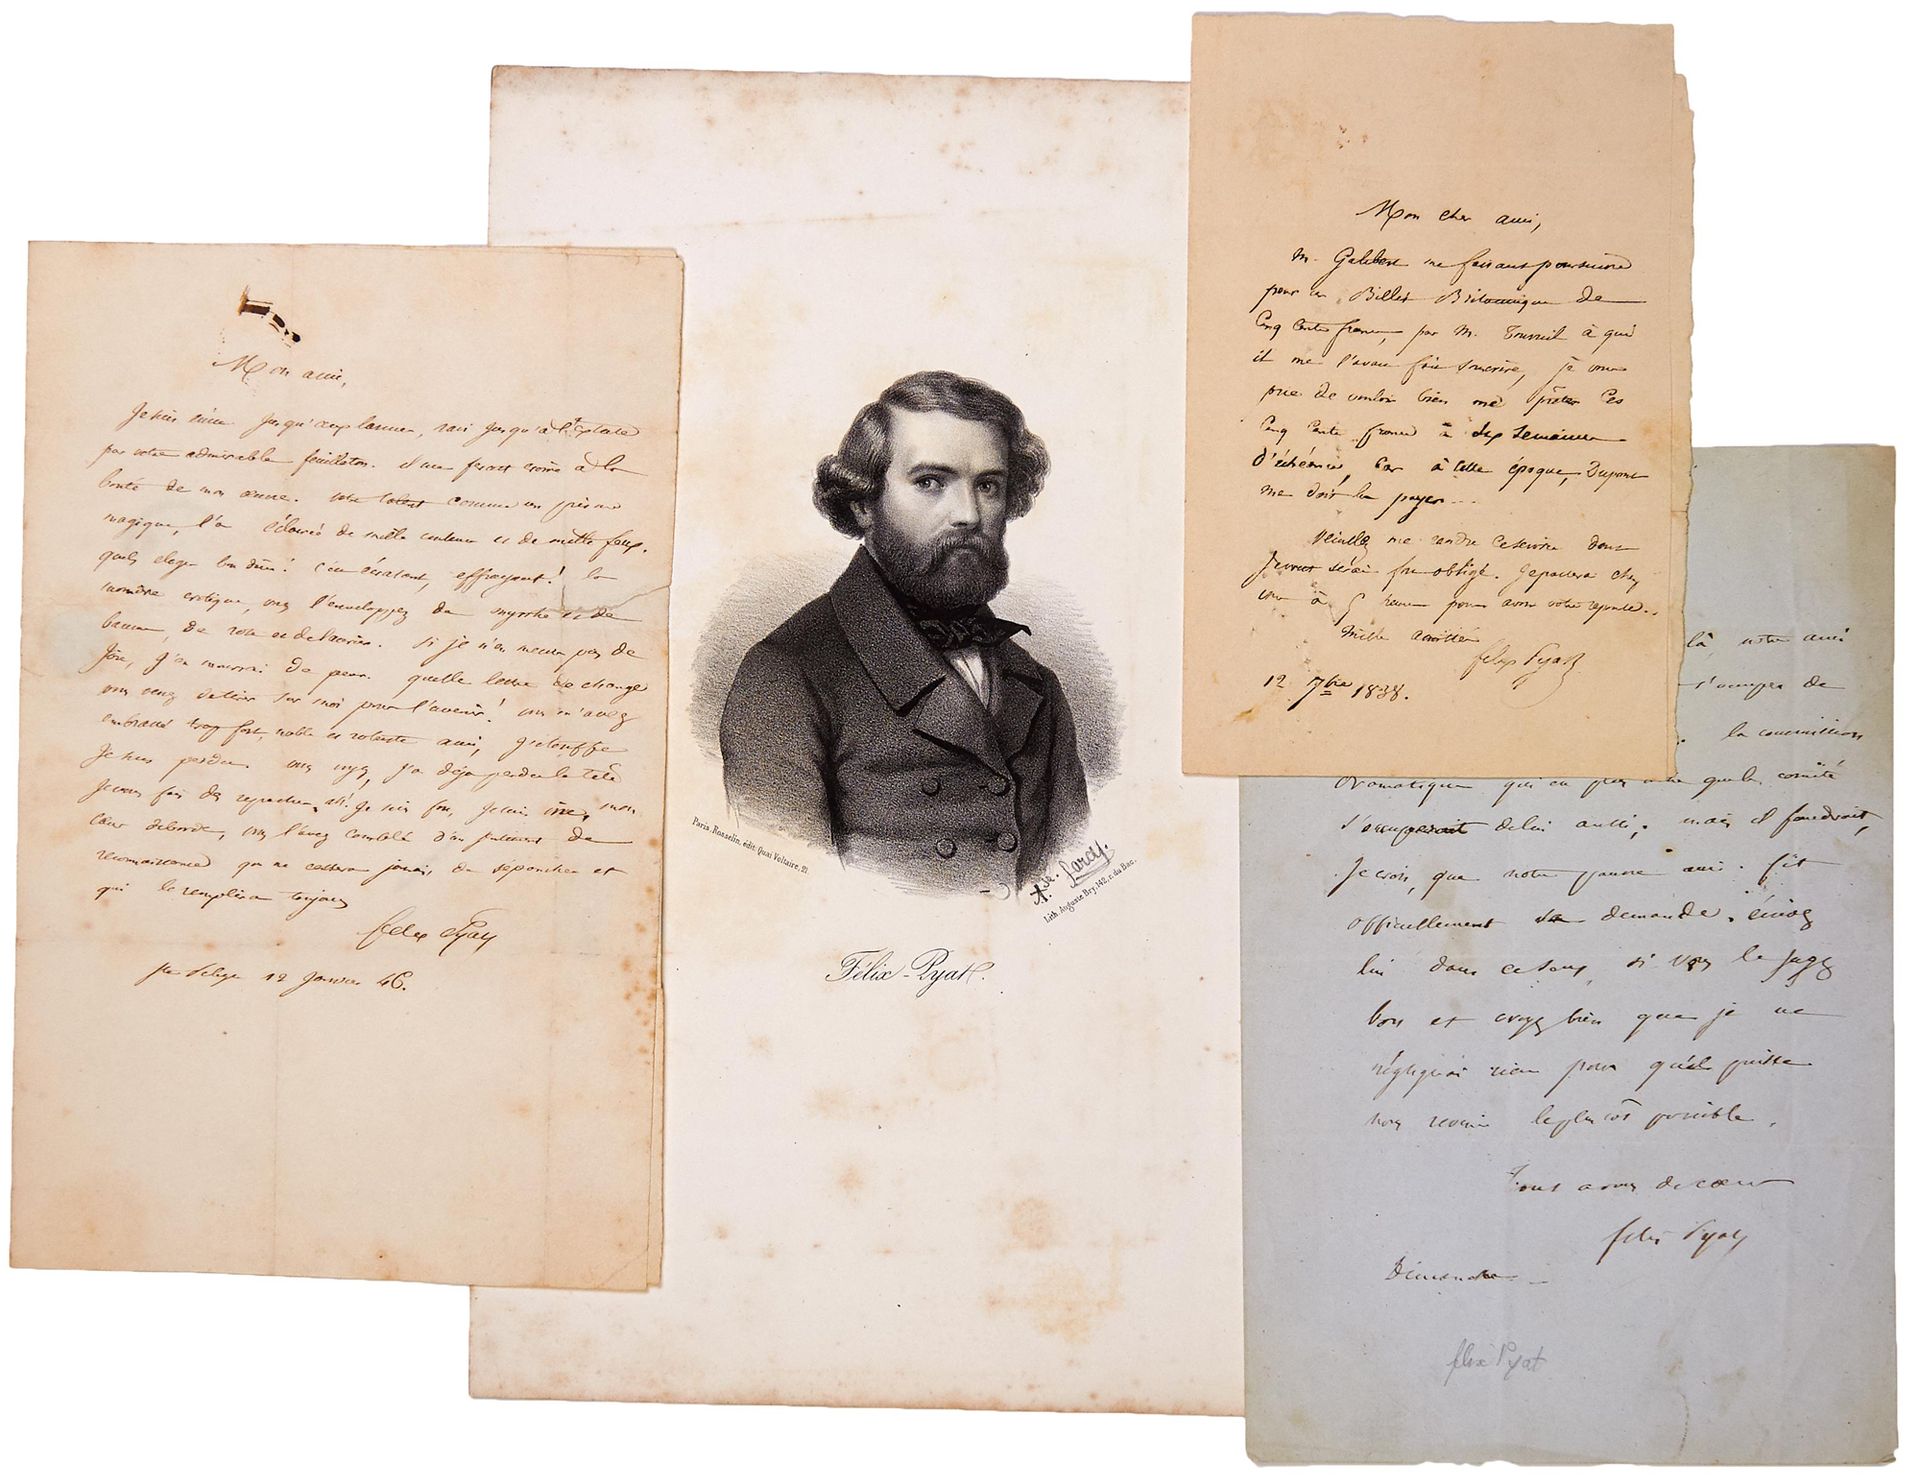 Mon ami,
jusqu'à l'extase
par votre admirable feuilleton. il me ferait croire à la
bonté de mon œuvre. votre talent comme un prisme
magique, l'a de mille couleurs et de mille feux.
quels éloges bon dieu! c'en écrasant, effrayant! la
moindre critique, vous l'enveloppez de myrrhe et de
baume, de rose et de laurier. si je n'en meurs pas de
joie, j'en mourrai de peur. quelle lettre de change
vous venez de tirer sur moi pour l'avenir! vous m'avez
embrassé trop fort, noble et robuste ami, j'étouffe
Je suis perdu. vous voyez, j'ai déjà perdu la tête
Je vous fais des reproches. ah! je suis fou, je suis ivre, mon
cœur déborde, vous l'avez comblé d'un sentiment de
reconnaissance qui ne cessera jamais de s'épancher et
qui le remplira toujours
félix Pyat
Ste Pélagie 12 Janvier 46.
Paris, Rosselin, édit. Quai Voltaire, 21.
Lith. Auguste Bry, 142, r. du Bac.
Félix-Pyat.
Mon cher ami,
M. Galibert me faisant poursuivre
pour un Billet Britannique de
Cinq Cents francs, par M. à qui
il me l'avait fait souscrire, je vous
prie de vouloir bien me prêter ces
Cinq Cents francs à six semaines
d'échéance, Car à cette époque, Dupont
me doit les payer...
Veuillez me rendre ce service dont
Je vous serai fort obligé. Je passerai chez
vous à 5 heures pour avoir votre réponse..
Mille amitiés
félix Pyat
12 7bre 1838.
là, notre ami
s'occuper de
la commission
dramatique qui en plus que le comité
s'occuperait de lui aussi; mais il faudrait,
Je crois, que notre pauvre ami fit
officiellement sa demande. écrivez
lui dans ce sens, si vous le jugez
bon et croyez bien que je ne
négligerai rien pour qu'il puisse
nous revenir le plus tôt possible.
Tout à vous de cœur
félix Pyat
Dimanche
félix Pyat